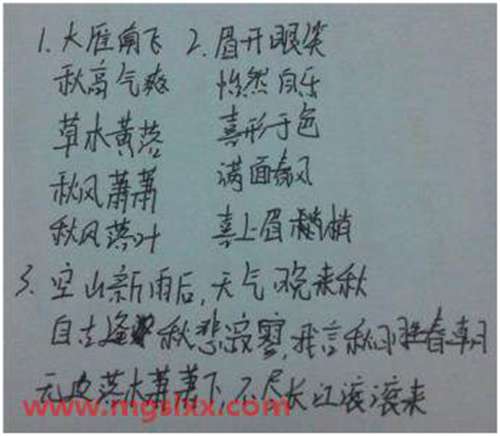 1.大雁南飞
秋高气爽
草木黄落
秋风萧萧
秋风落叶
2.眉开眼笑
怡然自乐
喜形于色
满面春风
喜上眉梢
3.空山新雨后,天气晚来秋
自古逢秋悲寂寥,我言秋日胜春
无边落木萧萧下,不尽长江滚滚来
www.mgslxx.com